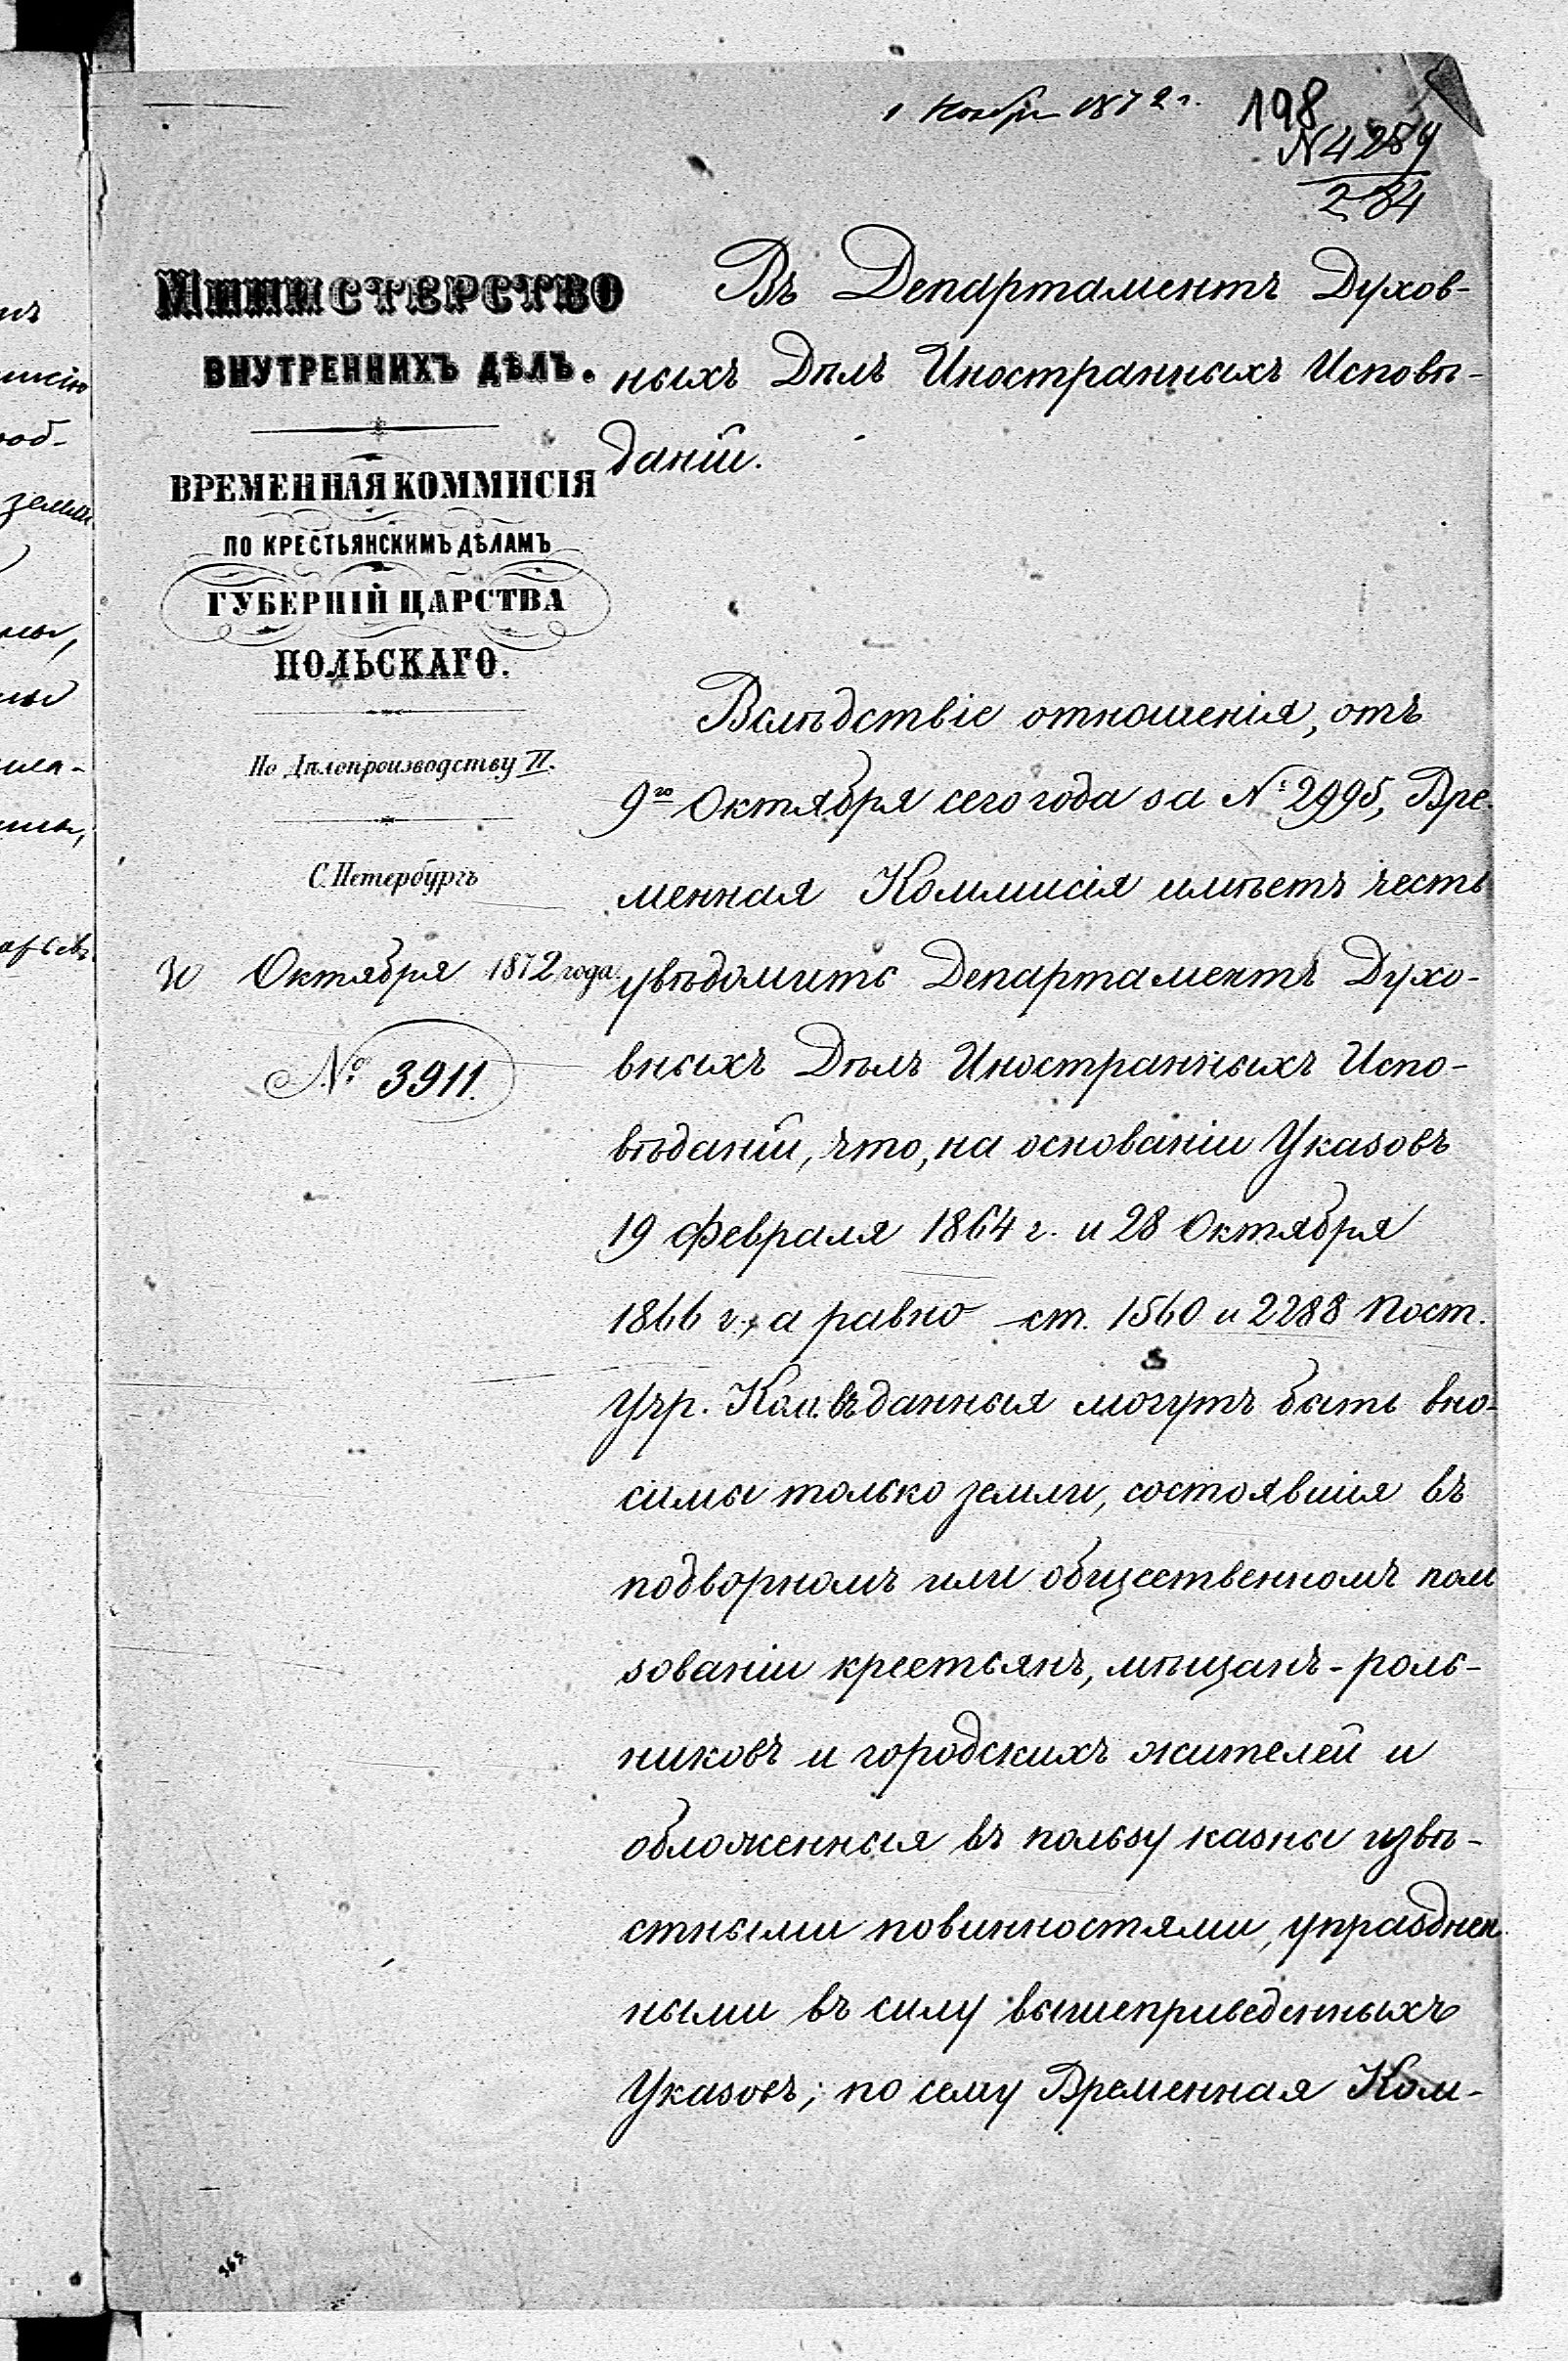 1 Ноября 1872 г.
198
N 4289
234
Министерство
внутреннихъ дѣлъ.
ВРЕМЕННАЯ КОММИСІЯ
ПО КРЕСТЬЯНСКИМЪ ДѢЛАМЪ
ГУБЕРНІЙ ЦАРСТВА
ПОЛЬСКАГО.
По Дѣлопроизводству II.
С. Петербургъ
30 Октября 1872 года
№ 3911.
Въ Департаментъ Духов-
ныхъ Дѣлъ Иностранныхъ Исповѣ-
даній.
Вслѣдствіе отношенія, отъ
9го Октября сего года за № 2995, Вре-
менная Коммисія имѣетъ честь
увѣдомить Департаментъ Духо-
вныхъ Дѣлъ Иностранныхъ Испо-
вѣданій, что, на основаніи Указовъ
19 Февраля 1864 г. и 28 Октября
1866 г., а равно ст. 1560 и 2288 Пост.
Учр. Ком. въ данныя могутъ быть вно-
симы только земли, состоявшія въ
подворномъ или общественномъ поль
зованіи крестьянъ, мѣщанъ-роль-
никовъ и городскихъ жителей и
обложенныя въ пользу казны извѣ-
стными повинностями, упразднен
ными въ силу вышеприведенныхъ
Указовъ; по сему Временная Ком-
365